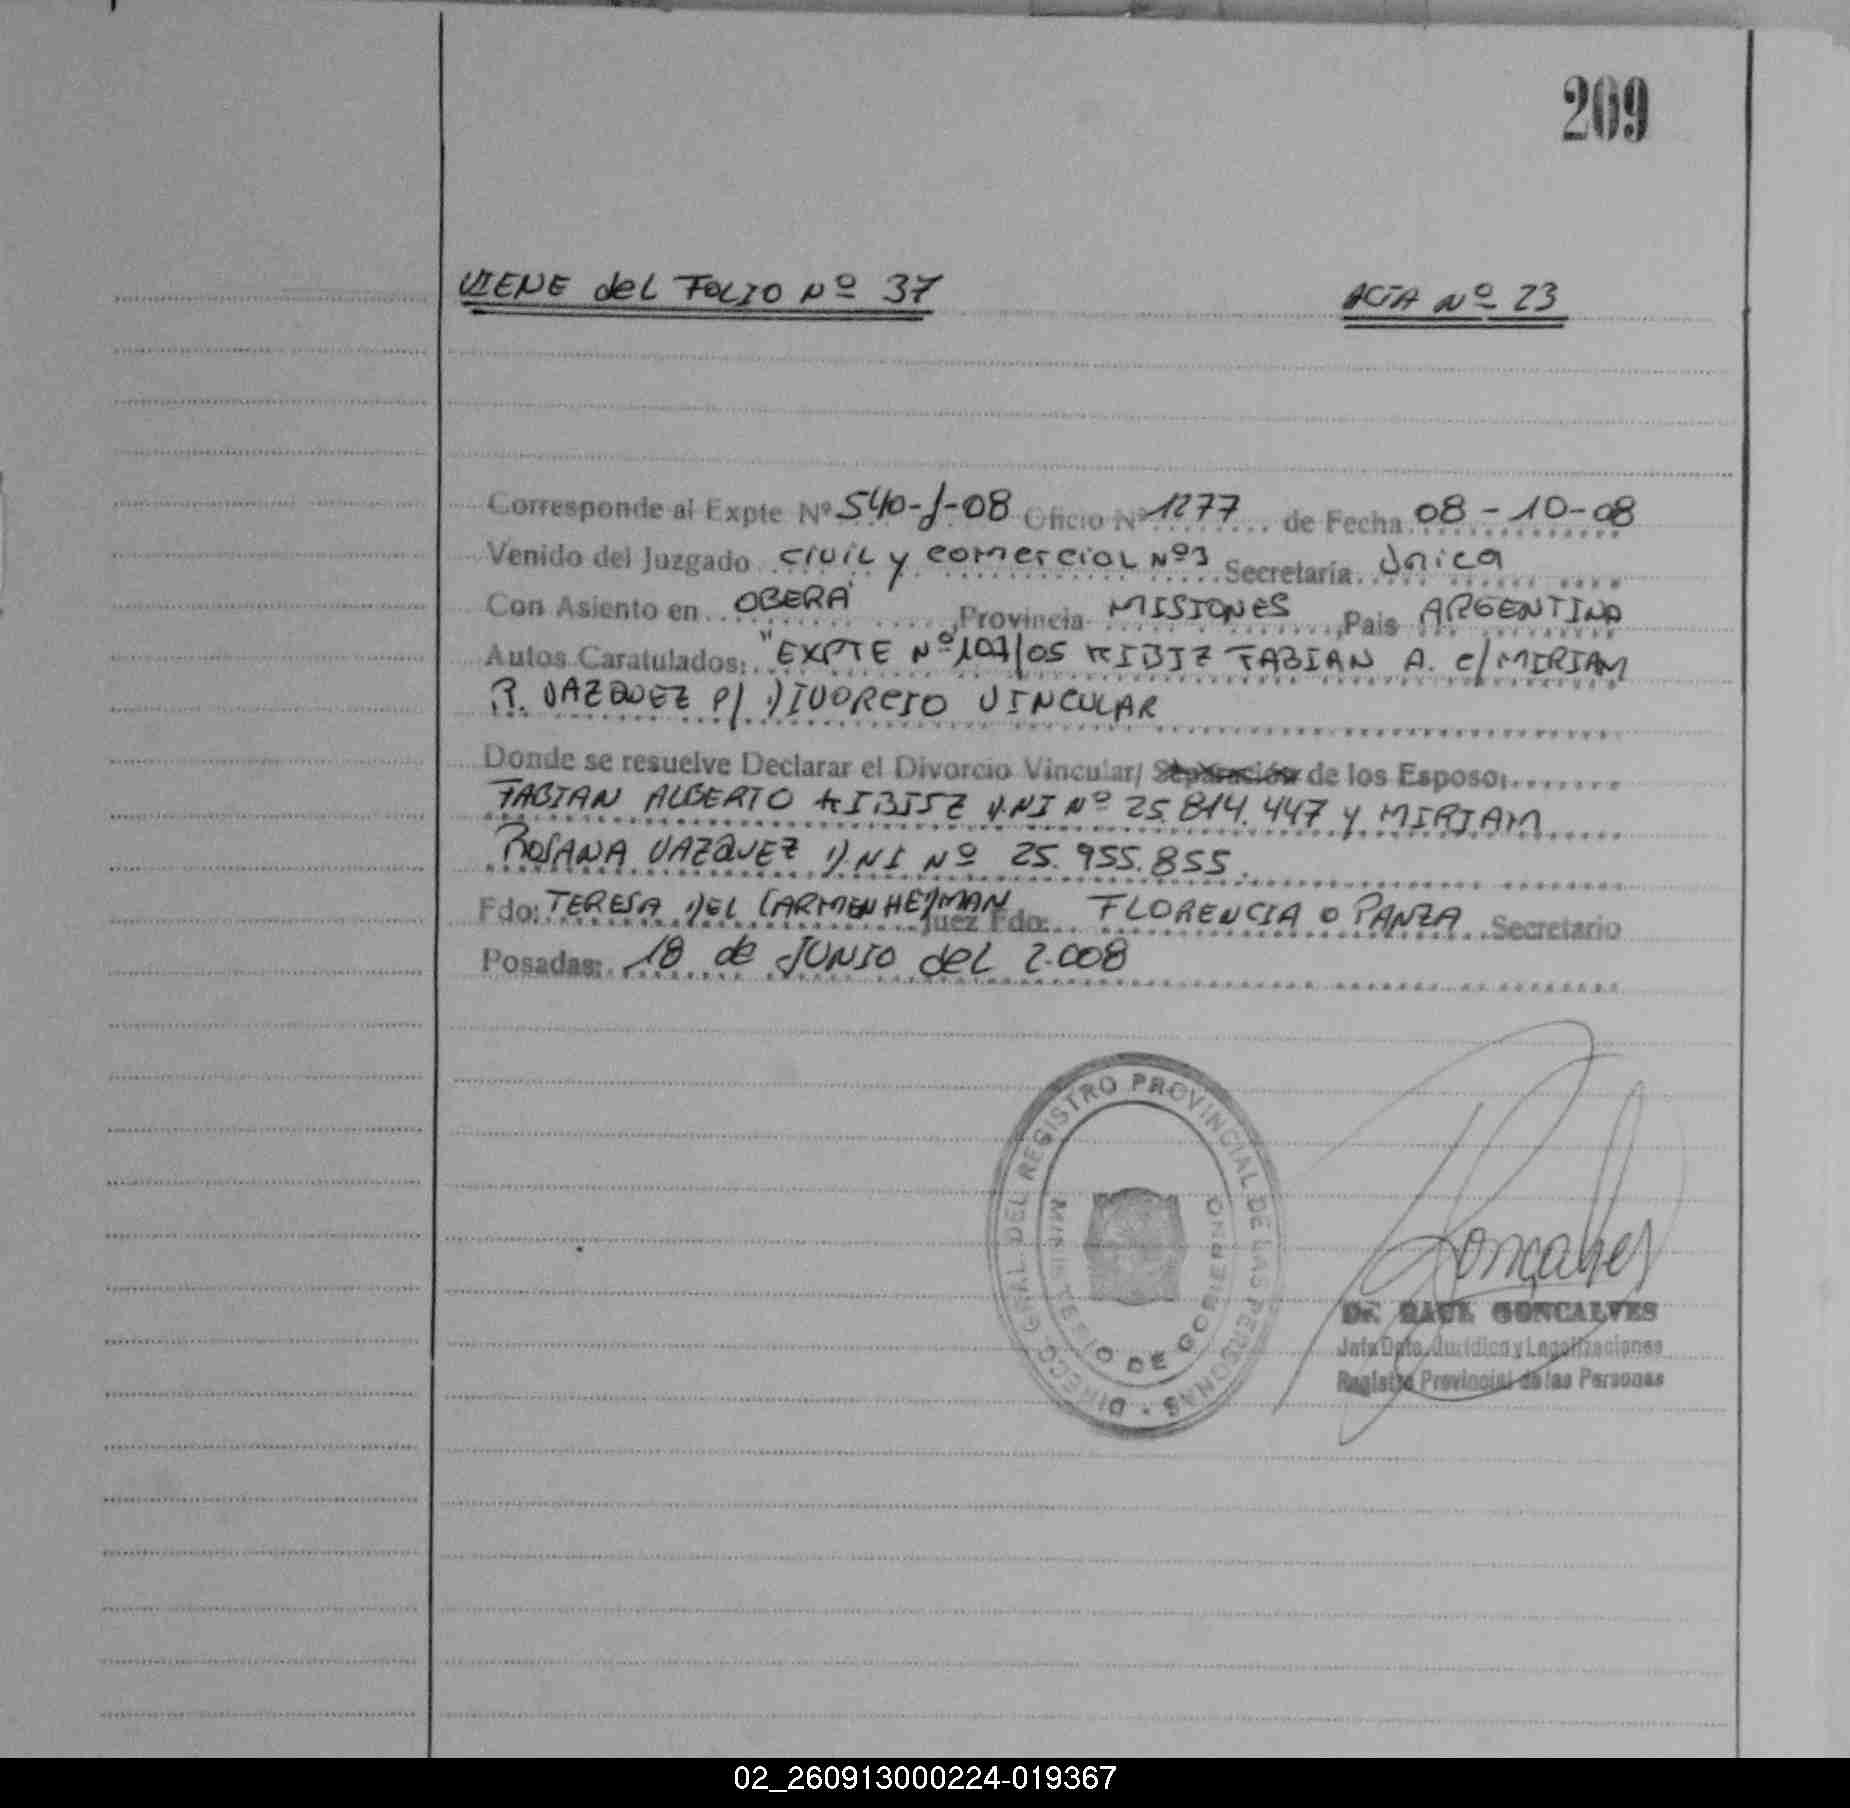 209
VIENE del FOLIO Nº 37
ACTA Nº 23
Corresponde al Expte Nº 540-J-08 Oficio Nº 1277 de Fecha 08-10-08
Venido del Juzgado CIVIL y COMERCIAL Nº3 Secretaría Única
Con Asiento en OBERÁ, Provincia MISIONES, Pais ARGENTINA
Autos Caratulados: "EXPTE Nº 107/05 KIBISZ FABIAN A. c/ MIRIAM
R. VAZQUEZ P/ DIVORCIO VINCULAR
Donde se resuelve Declarar el Divorcio Vincular/ Separación de los Esposo:
FABIAN ALBERTO KIBISZ DNI Nº 25.814.447 y MIRIAM
ROSANA VAZQUEZ DNI Nº 25.955.855.
Fdo: TERESA DEL CARMEN HEDMAN Juez Fdo: FLORENCIA O PANZA Secretario
Posadas: 18 de JUNIO del 2.008
DIRECC. GRAL. DEL REGISTRO PROVINCIAL DE LAS PERSONAS
MINISTERIO DE GOBIERNO
Goncalves
Dr. RAUL GONCALVES
Jefe Dpto. Jurídico y Legalizaciones
Registro Provincial de las Personas
02_260913000224-019367